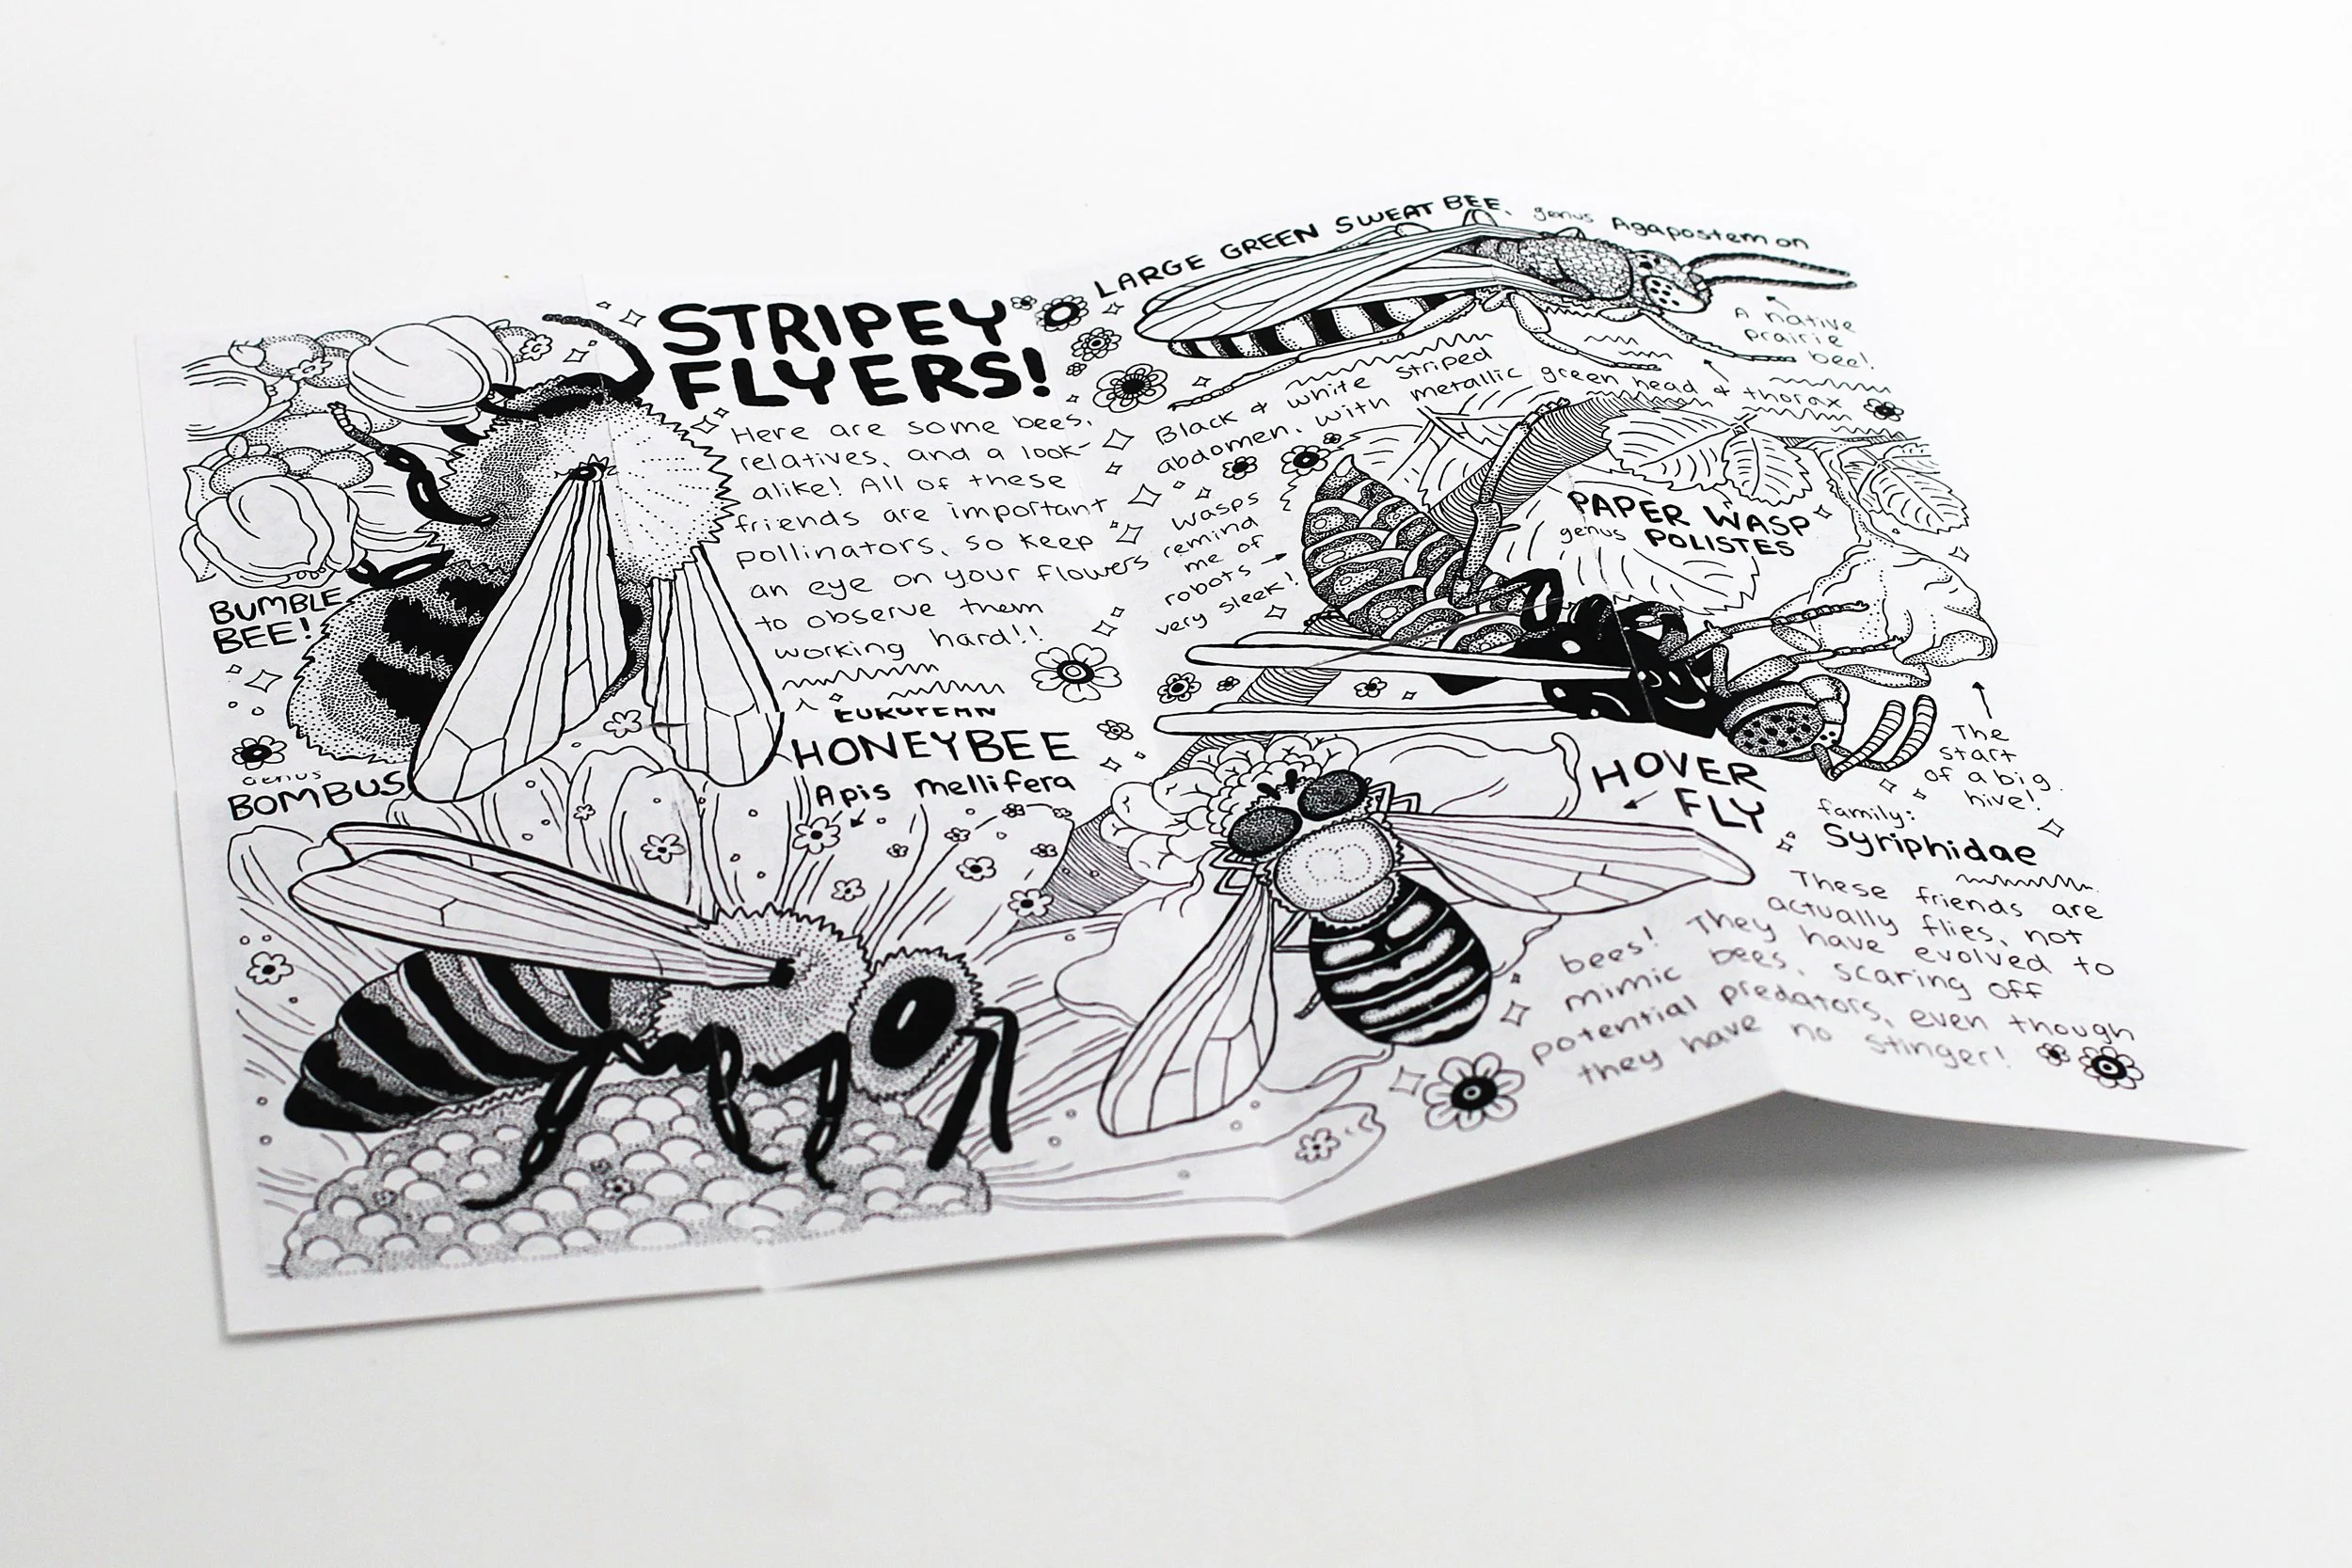 STRIPEY
FLYERS!
Here are some bees,
relatives, and a look-
alike! All of these
friends are important
pollinators, so keep
an eye on your flowers
to observe them
working hard!!
BUMBLE
BEE!
genus
BOMBUS
EUROPEAN
HONEYBEE
Apis mellifera
LARGE GREEN SWEAT BEE, genus Agapostemon
A native
prairie
bee!
Black & white striped
abdomen, with metallic green head & thorax
Wasps
remind
me of
robots →
very sleek!
PAPER WASP
genus POLISTES
The
start
of a big
hive!
HOVER
FLY
family:
Syriphidae
These friends are
actually flies, not
bees! They have evolved to
mimic bees, scaring off
potential predators, even though
they have no stinger!